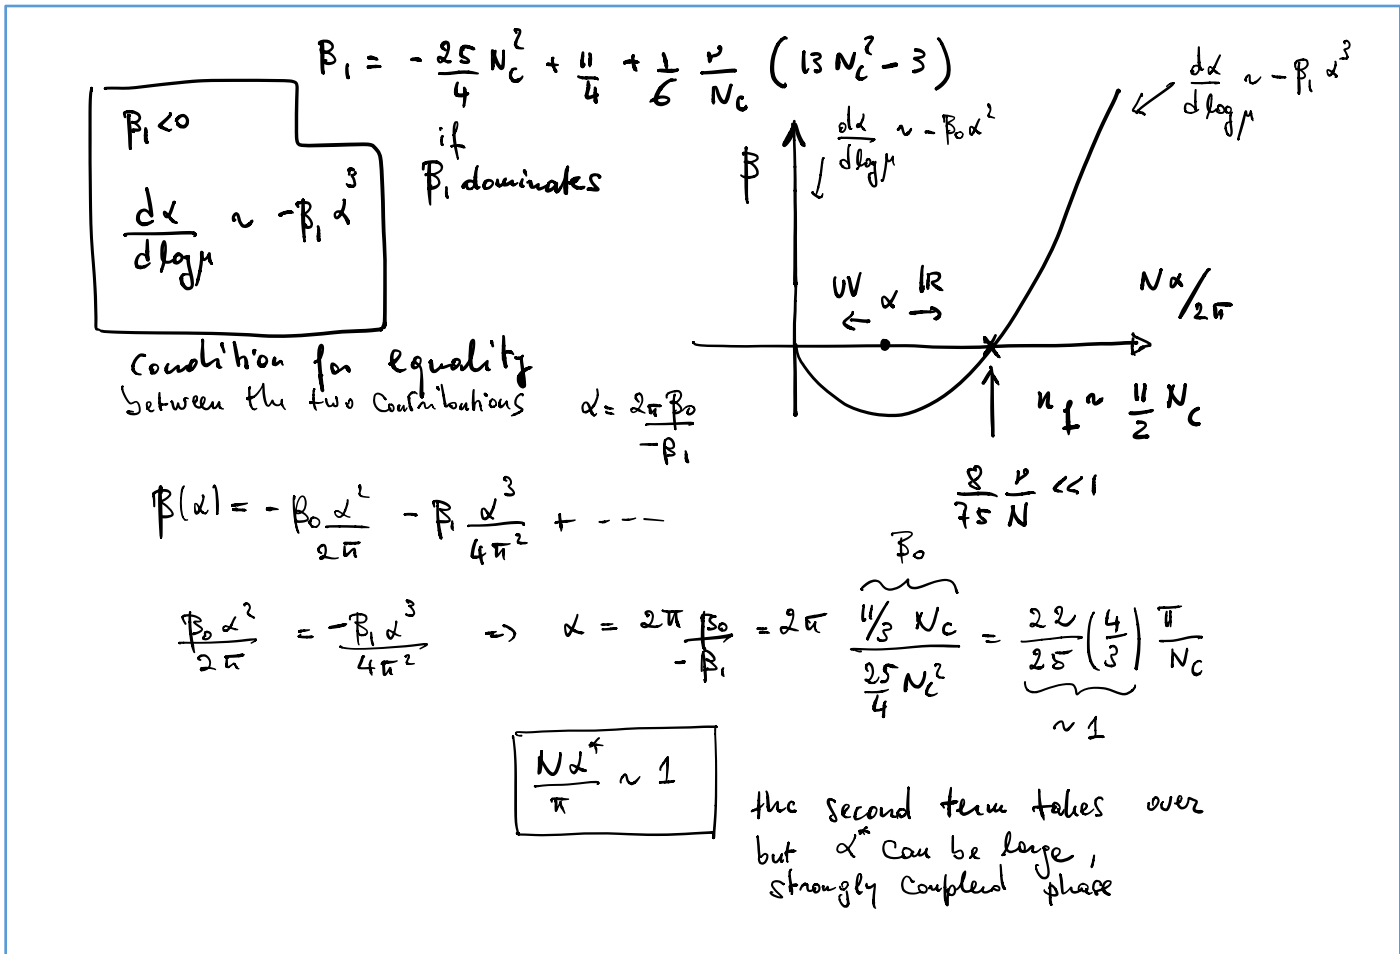 β₁ = - 25/4 N_c² + 11/4 + 1/6 ν/N_c (13 N_c² - 3)
β₁ < 0
dα/dlogμ ~ -β₁ α³
if
β₁ dominates
β
dα/dlogμ ~ -β₀α²
dα/dlogμ ~ -β₁ α³
UV α IR
← →
Nα/2π
n_f ~ 11/2 N_c
8/75 ν/N <<1
Condition for equality
between the two contributions
α = 2πβ₀/-β₁
β(α) = - β₀ α²/2π - β₁ α³/4π² + ----
β₀ α²/2π = -β₁ α³/4π² => α = 2π β₀/-β₁ = 2π (11/3 N_c)/(25/4 N_c²) = 22/25 (4/3) π/N_c
β₀
~ 1
Nα*/π ~ 1
the second term takes over
but α* can be large,
strongly coupled phase